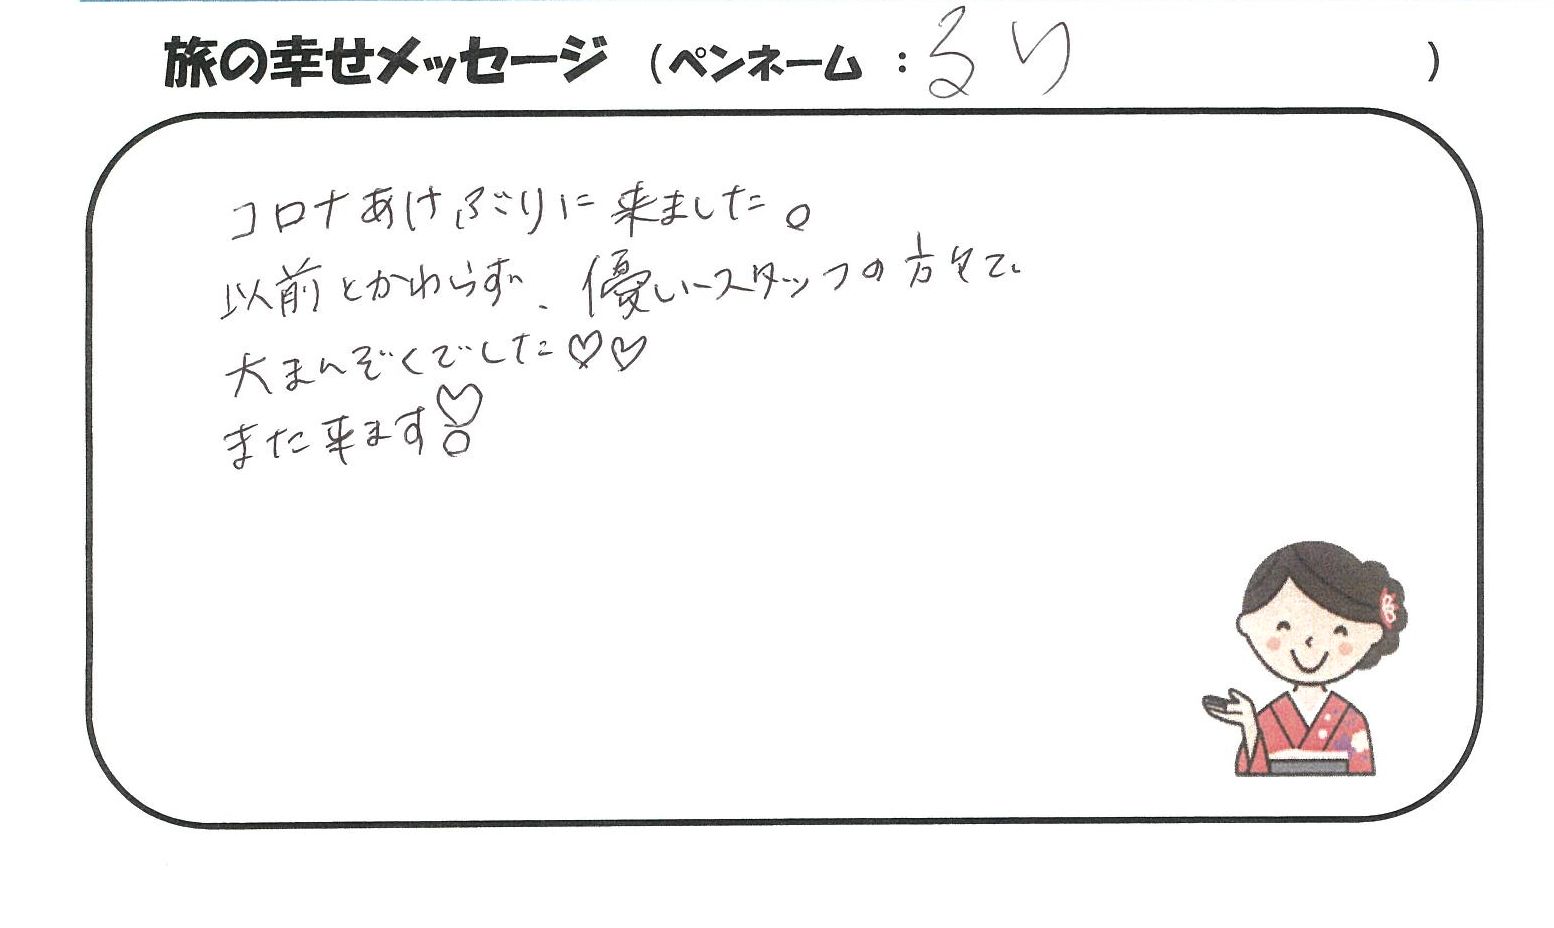 旅の幸せメッセージ (ペンネーム : るり )
コロナあけぶりに来ました。
以前とかわらず、優しいスタッフの方々で、
大まんぞくでした♡♡
また来ます♡